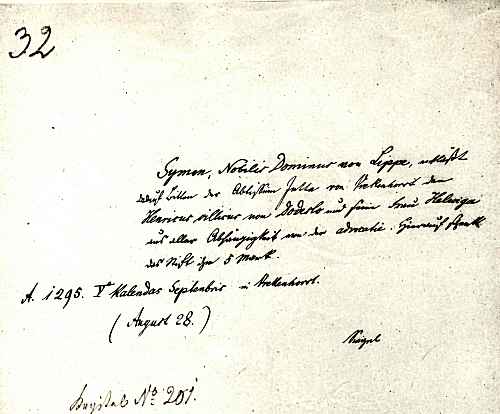 32
Symon, Nobilis Dominus von Lippe, entläßt
durch Bitten der Abtissin Jutta von Frekenhorst den
Henricus villicus von Dodorlo und seine Frau Helewiga
aus aller Abhängigkeit von der advocatie. Hierauf
das Stift ihm 5 Mark.
A. 1295. V Kalendas Septembris in Frekenhorst.
(August 28.)
Siegel
No. 201.